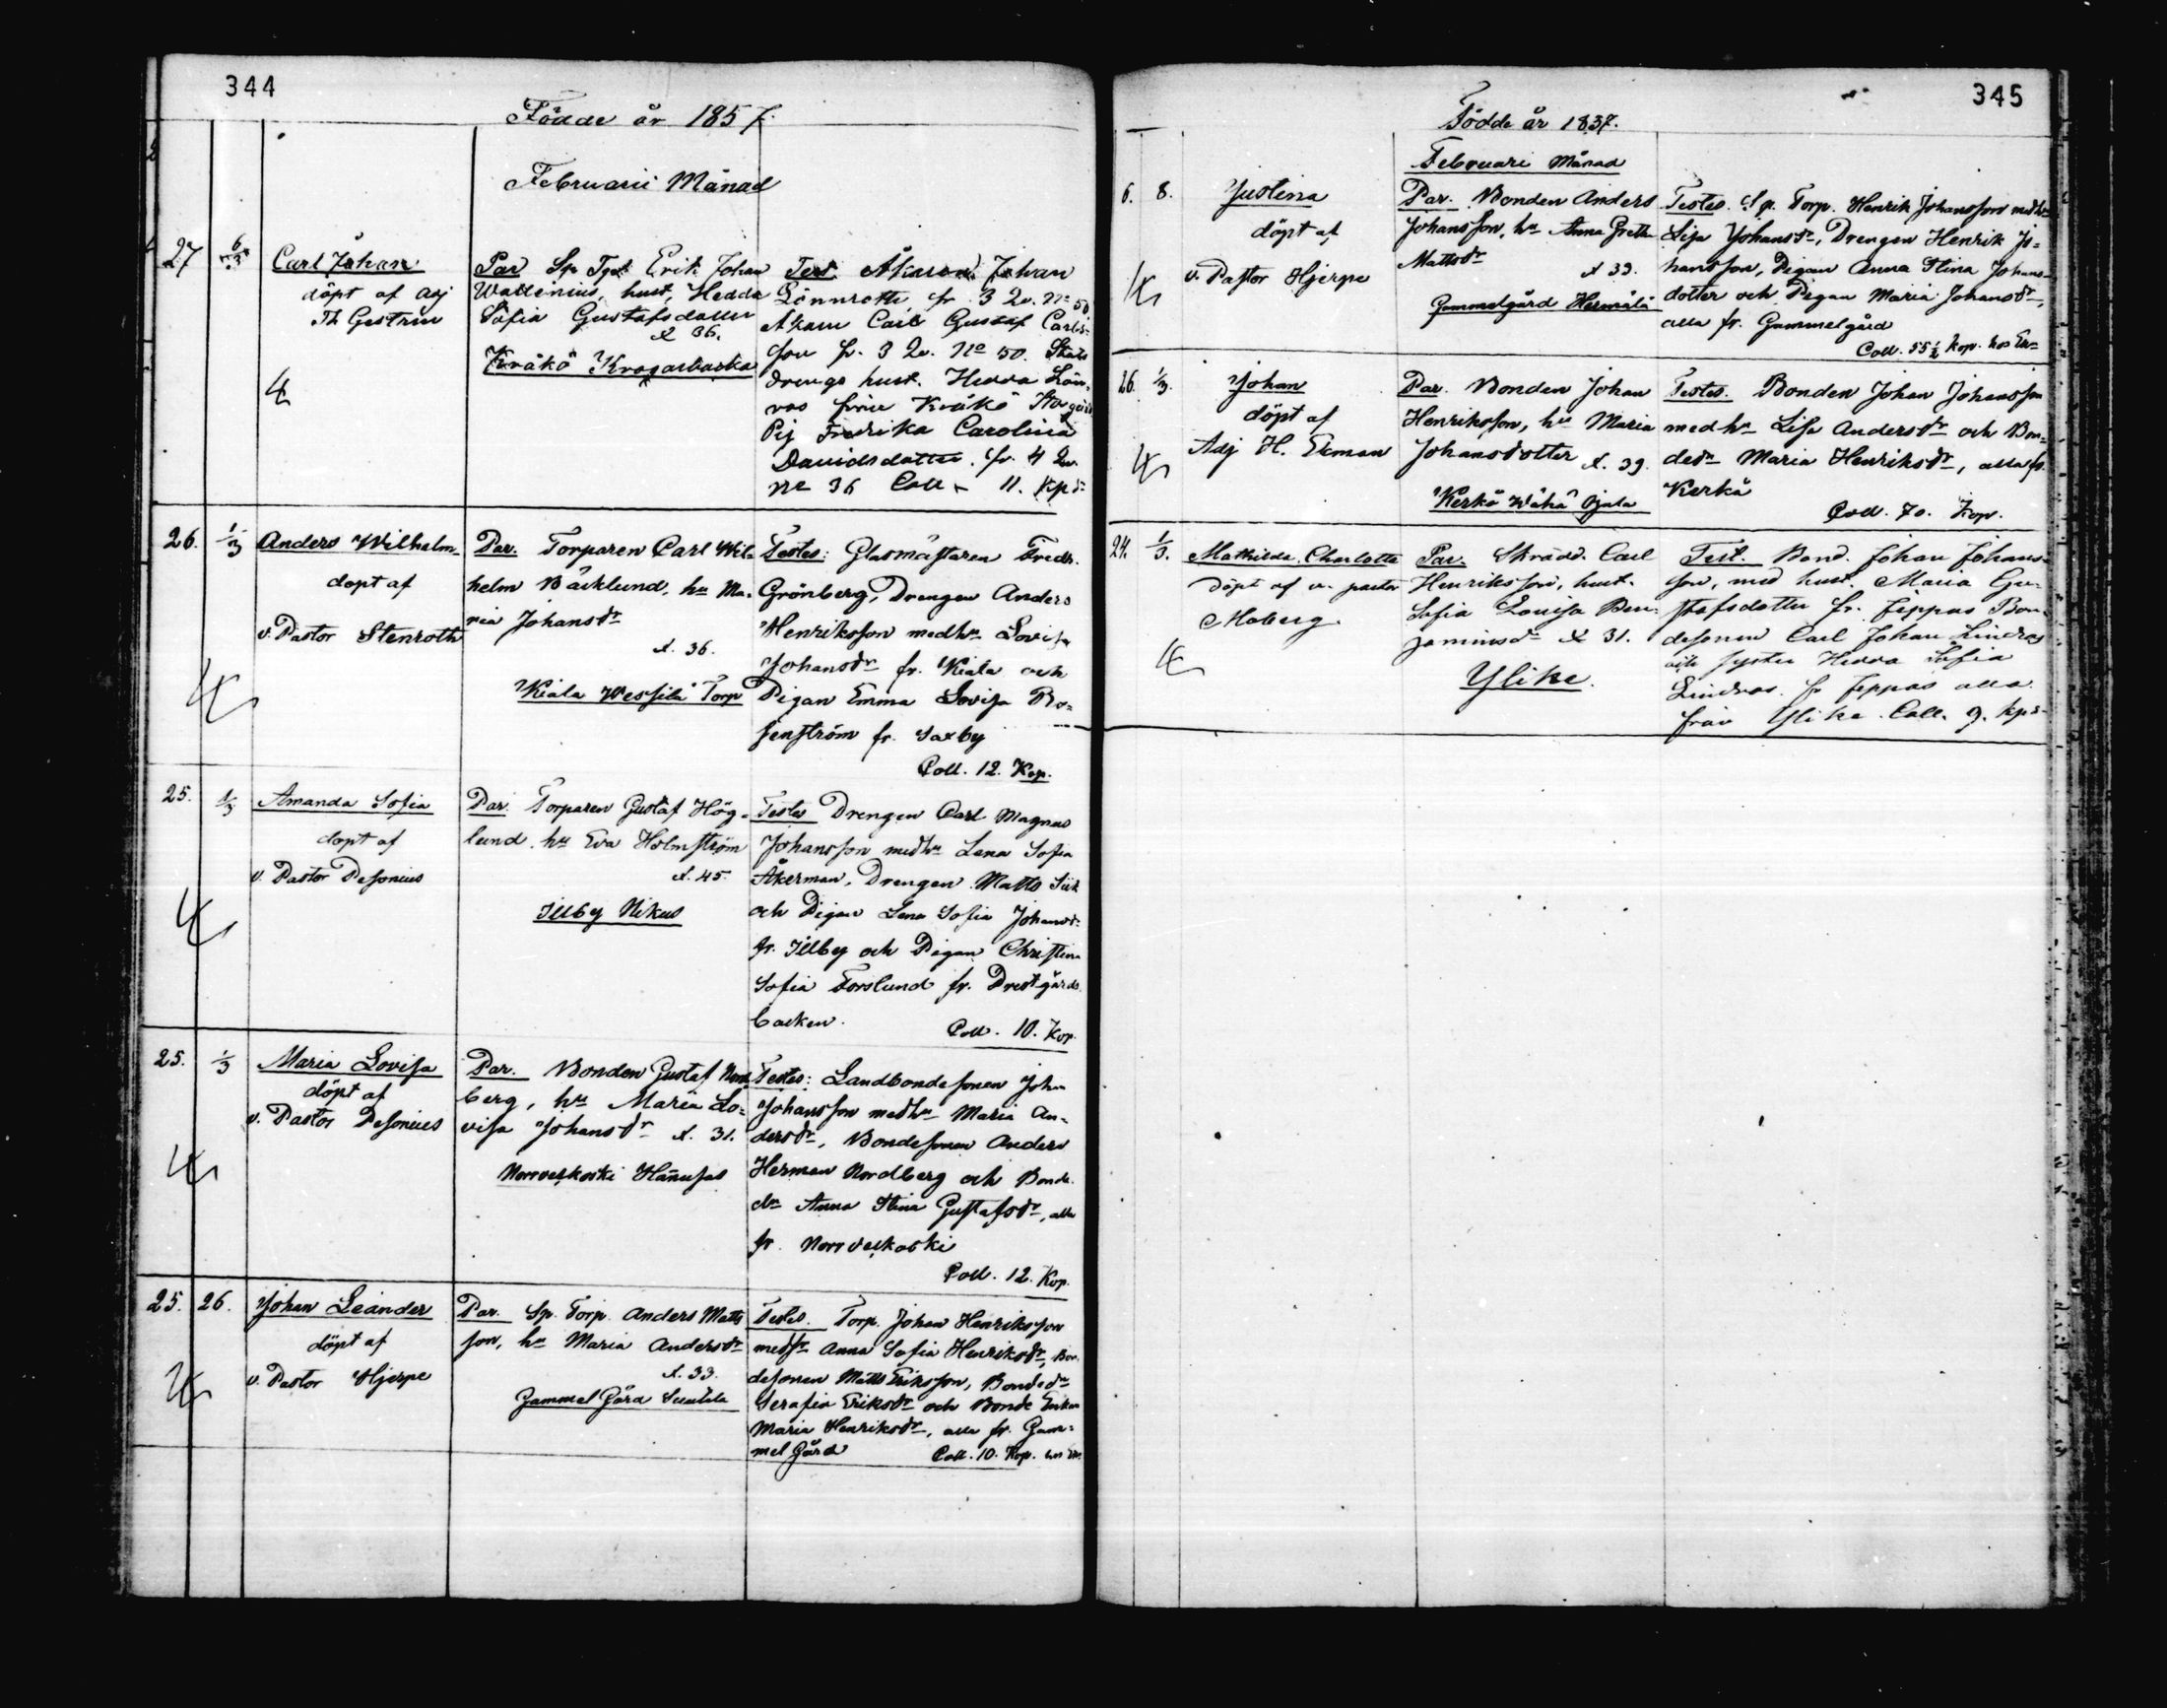 344
Födde år 1857.
Februarii Månad
27 6/3
Carl Johan
döpt af Adj
Th Gestrin
Par Sp Erik Johan
Wallenius, hust, Hedda
Sofia Gustafsdotter
36.
Kråkö
Test. Åkaren Johan
Lönnroth fr 3 Qv. No 50
Åkaren Carl Gustaf Carls-
son fr. 3 Qv. No 50.
drengs hust. Hedda Lön-
ros från Kråkö
Pig Fredrika Carolina
Davidsdotter. fr. 4 Qv.
No 36 Coll 11. Kpr
26. 1/3
Anders Wilhelm
döpt af
v. Pastor Stenroth
Par. Torparen Carl Wil-
helm Bäcklund, hu Ma-
ria Johansdr
36.
Kiala Wessilä Torp
Testes: Glasmästaren Fredr.
Grönberg, Drengen Anders
Henriksson med hu Lovisa
Johansdr fr. Kiala och
Pigan Emma Lovisa Ro-
senström fr. Saxby
Coll. 12. Kop.
25. 1/3
Amanda Sofia
döpt af
v. Pastor Desonius
Par. Torparen Gustaf Hög-
lund. hu Eva Holmström
45.
Illby Nikus
Testes Drengen Carl Magnus
Johansson med hu Lena Sofia
Åkerman, Drengen Matts
och Pigan Lena Sofia Johansdr
fr. Illby och Pigan Christina
Sofia Forslund fr. Prestgårds
backen.
Coll. 10. Kop.
25. 1/3
Maria Lovisa
döpt af
v. Pastor Desonius
Par. Bonden Gustaf Nord-
berg, hu Maria Lo-
visa Johansdr 31.
Norrveckoski Hannusas
Testes: Landbondesonen Joh
Johansson med hu Maria An-
dersdr, Bondesonen Anders
Herman Nordberg och Bonde
dn Anna Stina Gustafsdr, alla
fr. Norrveckoski
Coll. 12. Kop.
25. 26.
Johan Leander
döpt af
v. Pastor Hjerpe
Par. Sp. Torp. Anders Matts
son, hu Maria Andersdr
33.
Gammelgård
Testes. Torp. Johan Henriksson
med hu Anna Sofia Henriksdr, Bon-
desonen Matts Eriksson, Bondedn
Serafia Eriksdr och Bonde Enkan
Maria Henriksdr, alla fr. Gam-
melgård
Coll. 10. Kop.
345
Födde år 1857.
Februari Månad
6. 8.
Justina
döpt af
v. Pastor Hjerpe
Par. Bonden Anders
Johansson, hu Anna Greta
Mattsdr
39.
Gammelgård Hermälä
Testes. Sp. Torp. Henrik Johansson med hu
Lisa Johansdr, Drengen Henrik Jo-
hansson, Pigan Anna Stina Johans-
dotter och Pigan Maria Johansdr,
alla fr. Gammelgård
Coll. 55 1/2 Kop.
26. 1/3.
Johan
döpt af
Adj H. Ekman
Par. Bonden Johan
Henriksson, hu Maria
Johansdotter 39.
Kerkö Wähä Ojala
Testes. Bonden Johan Johansson
med hu Lisa Andersdr och Bon-
dedn Maria Henriksdr, alla fr.
Kerkö
Coll. 70. Kop.
24. 1/3.
Mathilda Charlotta
döpt af v. pastor
Moberg.
Par. Skrädd. Carl
Henriksson, hust.
Sofia Lovisa Ben-
jaminsdr 31.
Ylike.
Test. Bond. Johan Johans-
son, med hust. Maria Gu-
stafsdotter fr. Jeppas Bon-
desonen Carl Johan Lindros
och syster Hedda Sofia
Lindros. fr Jeppas alla
från Ylike. Coll. 9. kpr